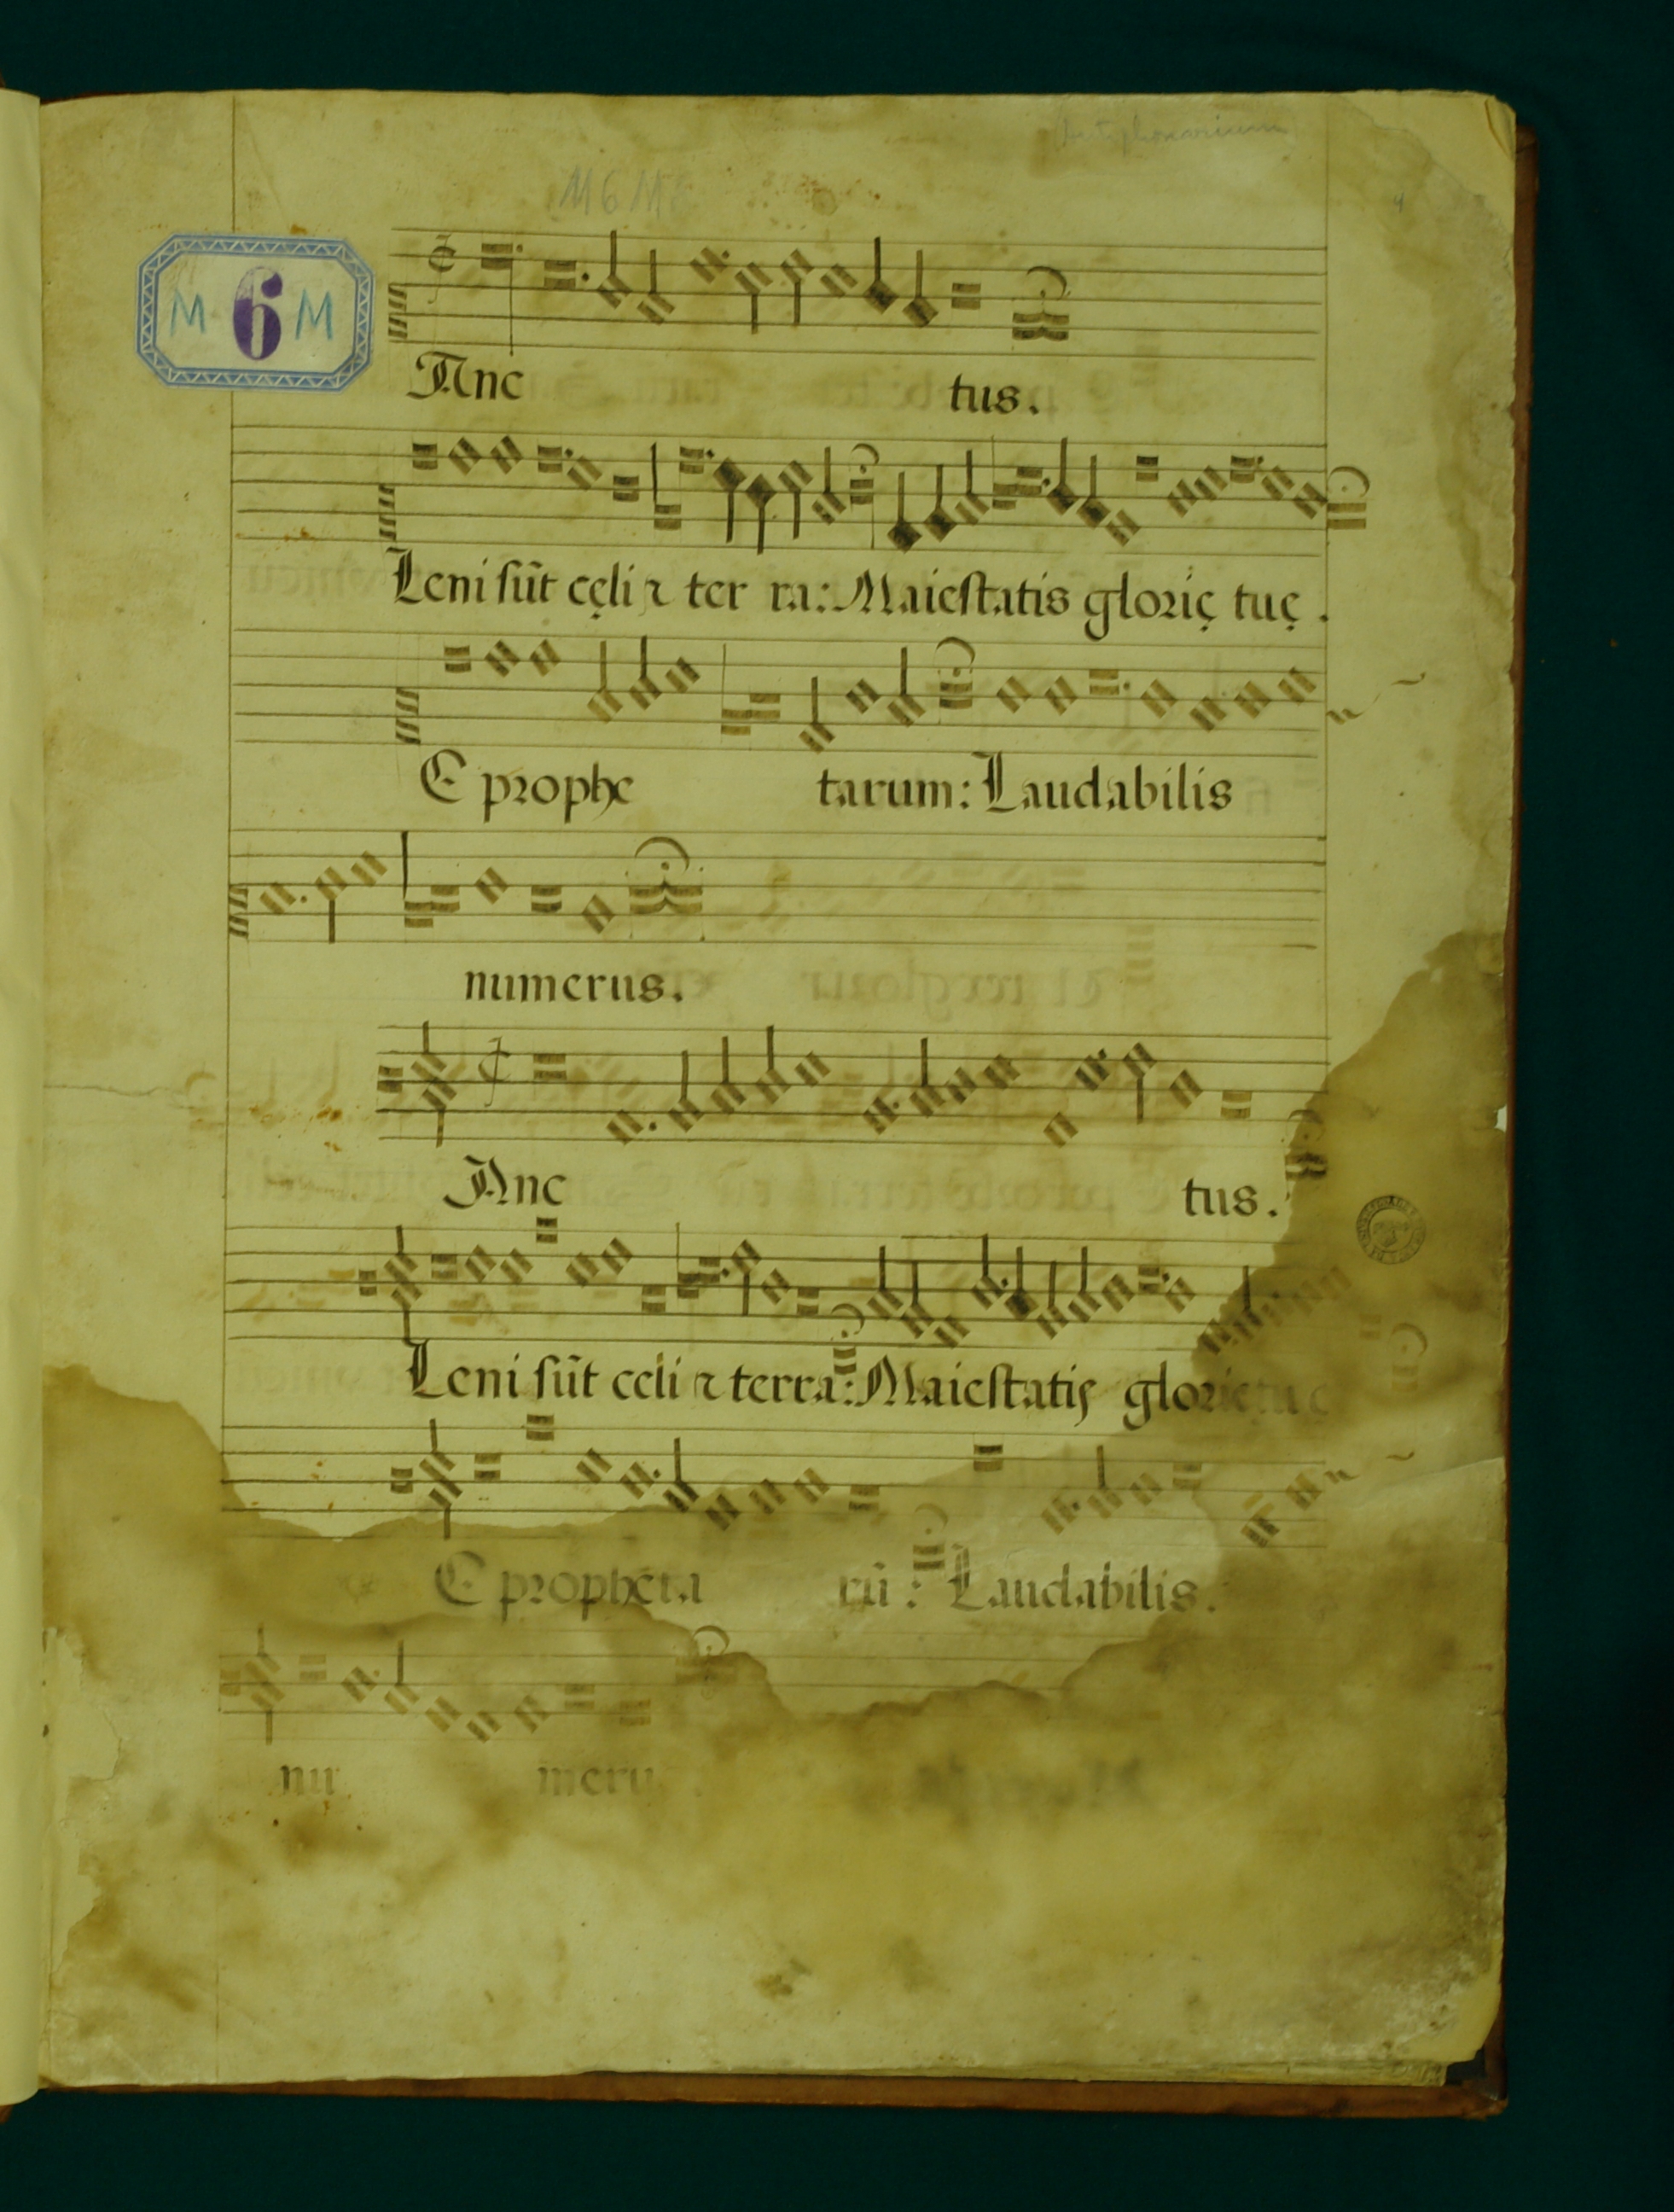 Antiphonarium
M6M6
4
M 6 M
Anc tus.
Leni sũt cęli ⁊ ter ra: Maiestatis glorię tuę.
E prophe tarum: Laudabilis
numerus.
Anc tus.
Leni sũt celi ⁊ terra: Maiestatis glorie tue
E propheta rũ: Laudabilis.
nu meru